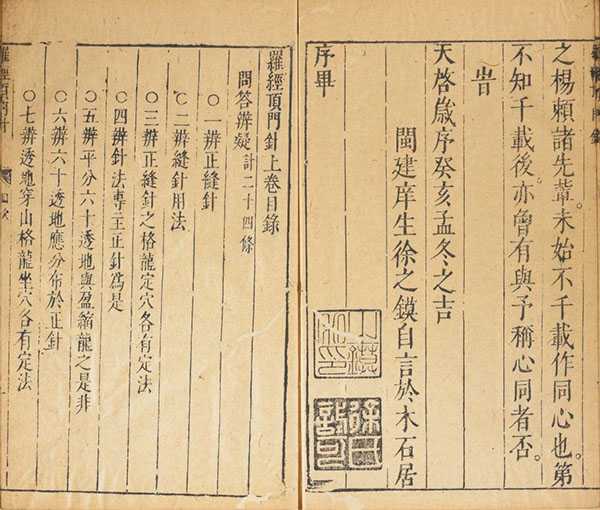 之楊賴諸先輩。未始不千載作同心也。第
不知千載後。亦會有與予稱心同者否。
旹
天啓歲序癸亥孟冬之吉
閩建庠生徐之鏌自言於木石居
序畢
羅經頂門針上卷目錄
問答辨疑計二十四條
○一辨正縫針
○二辨縫針用法
○三辨正縫針之格龍定穴各有定法
○四辨針法專主正針為是
○五辨平分六十透地與盈縮龍之是非
○六辨六十透地應分布於正針
○七辨透地穿山格龍坐穴各有定法